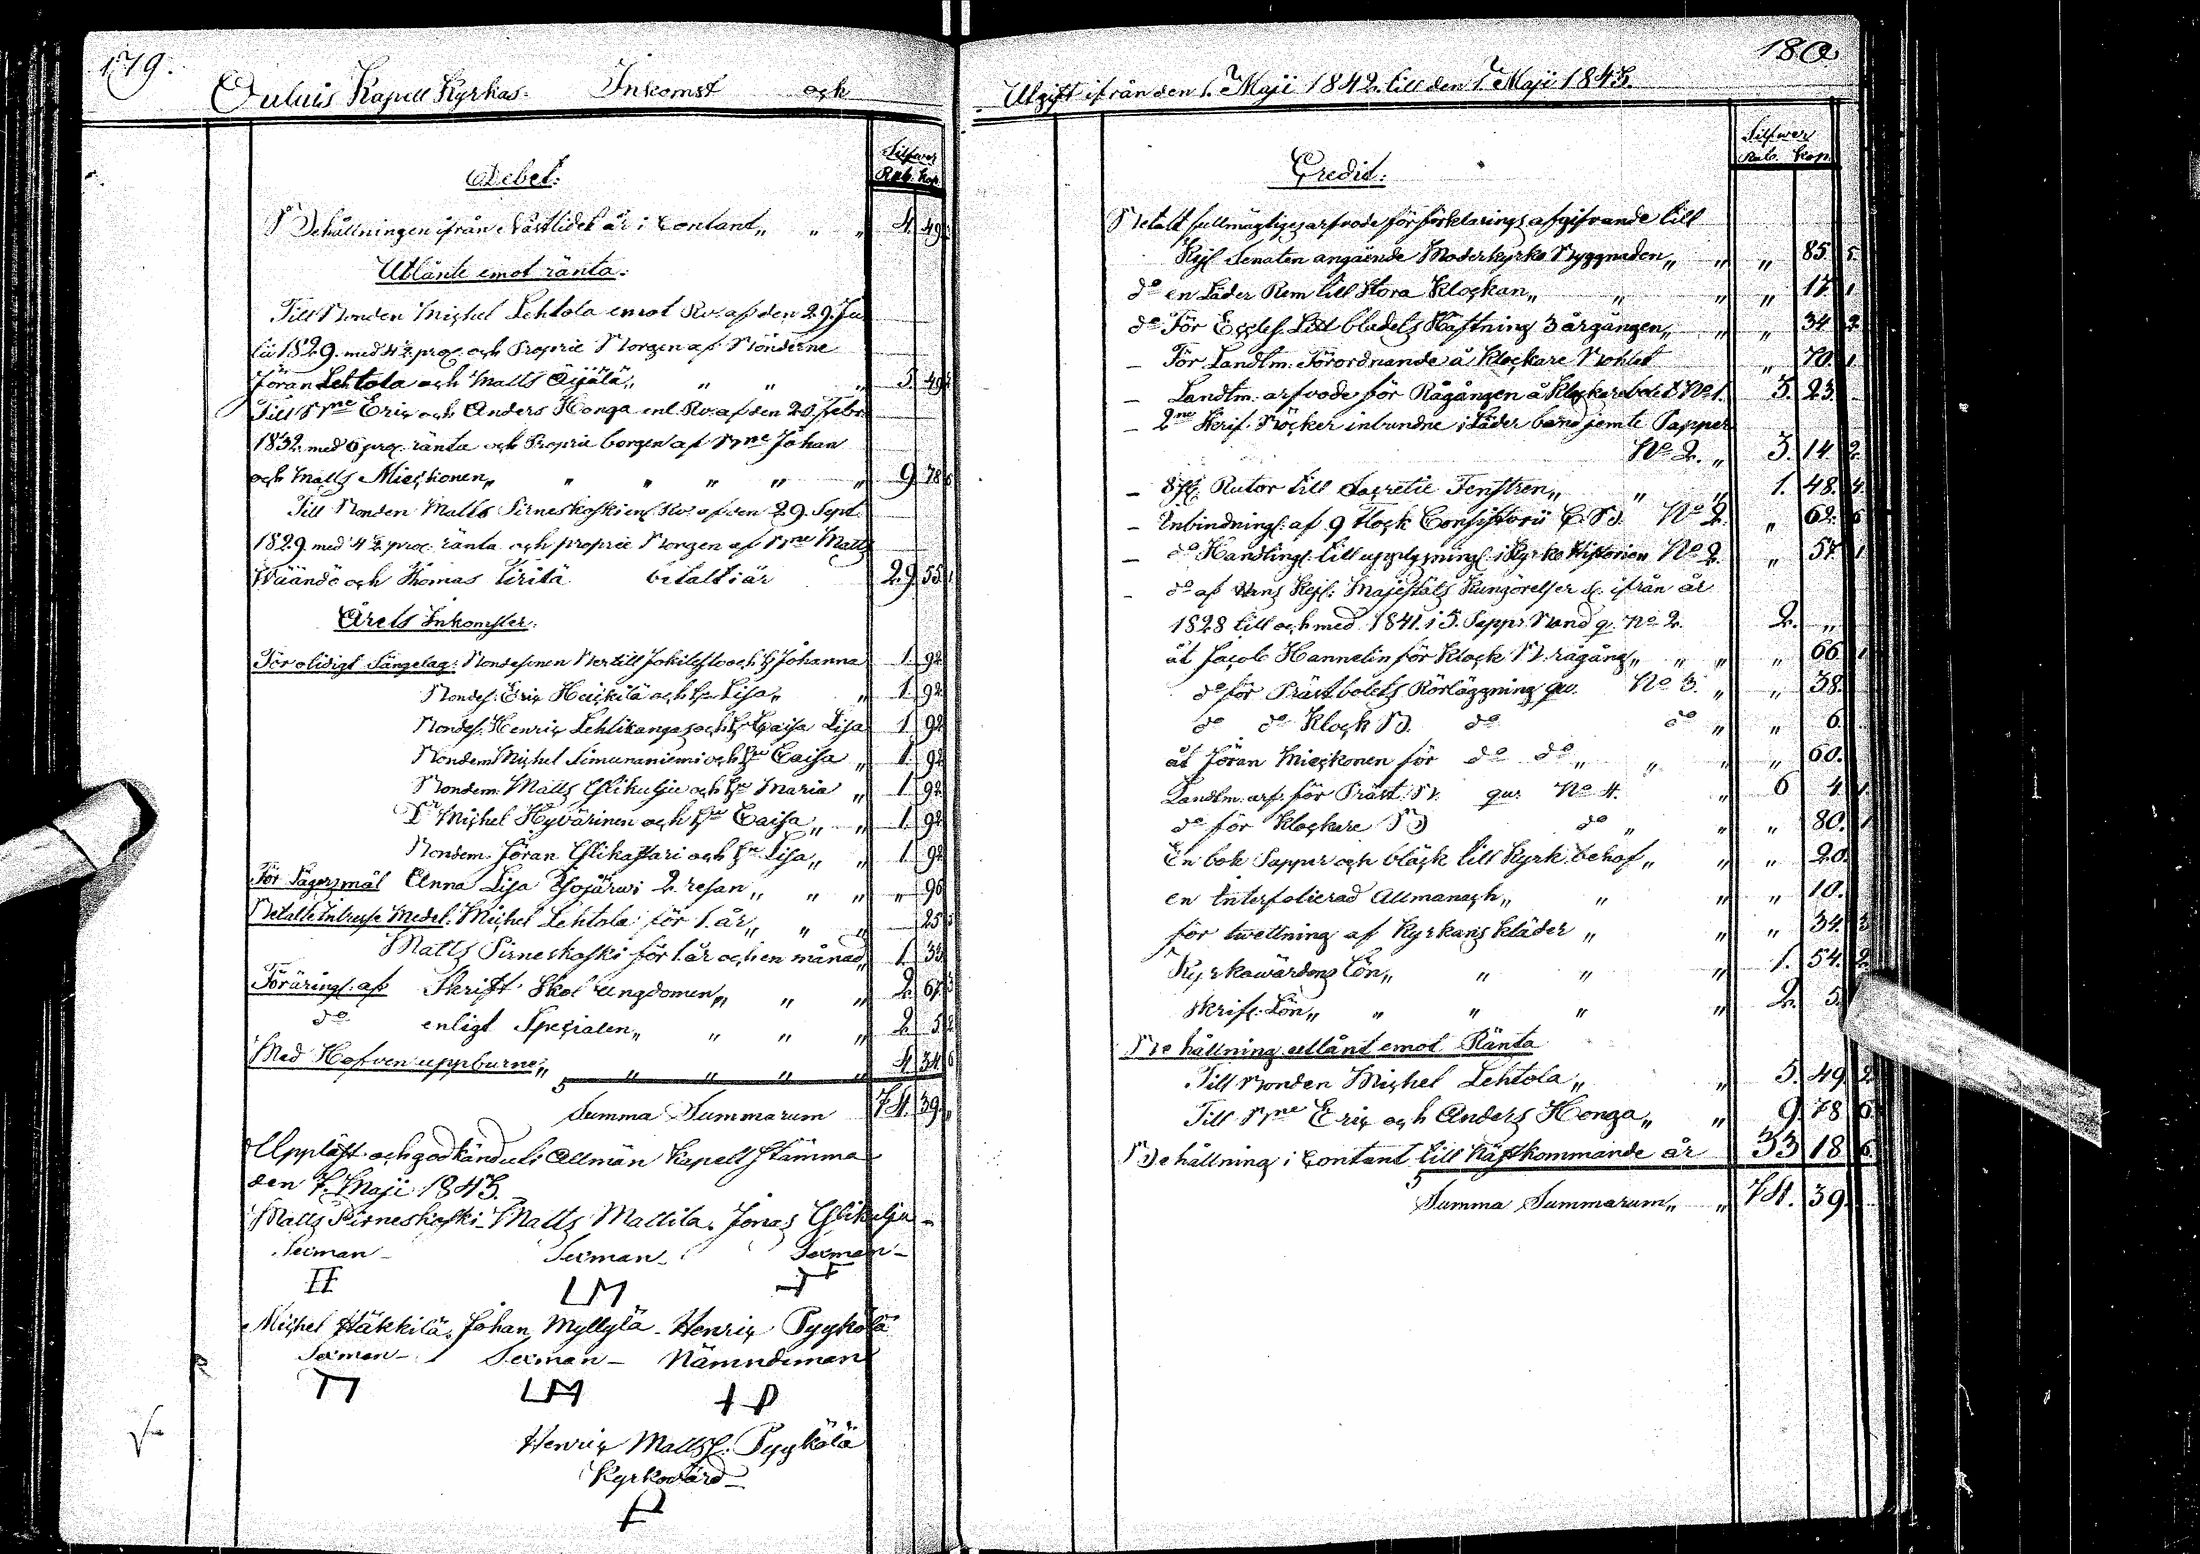 179.
Pulkis Kapell Kyrkas. Inkomst och
Silfwer
Rub. Kop.
Debet.
Behållningen ifrån Nästlidet år i Contant „ „ „ 4. 49.
Utlånte emot ränta.
Till Bonden Michel Lehtola emot Rv. af den 29. Ju
lii 1829. med 4½ proc. och Proprie Borgen af Bönderne
Jöran Lehtola och Matts Äijälä „ „ „ „ 5 49 2
Till Bne Eric och Anders Honga enl. Rv. af den 20 Febr.
1832. med 6 proc. ränta och Proprie borgen af Bne Johan
och Matts Mieskonen „ „ „ „ „ „ 9 78 6
Till Bonden Matts Pirneskoski enl. Rv. af den 29. Sept.
1829 med 4½ proc. ränta och proprie Borgen af Bne Matts
Wäändö och Thomas betalt i år 29 55 1
Årets Inkomster.
För olidigt Sängelag: Bondesonen Bertill och H. Johanna 1 92
Bondes. Eric Heickilä och Hu Lisa „ „ 1 92
Bondes. Henric Lehtikangas och Hu Caisa Lisa 1 92
Bondem. Michel Simunaniemi och Hu Caisa „ 1. 92
Bondem. Matts Ylikulju och Hu Maria „ 1 92
Dr Michel Hyvärinen och Hu Caisa „ „ 1. 92
Bondem. Jöran Ylikastari och Hu Lisa „ „ 1 92
För Lägersmål Anna Lisa 2. resan „ „ „ „ 96
Betalte Intresse Medel: Michel Lehtola för 1. år „ „ „ 25 5
Matts Pirneskoski för 1 år och en månad „ 1. 33
Föräringl. af Skrift Skol ungdomen „ „ „ 2. 67 5
do enligt Specialen „ „ „ „ 2 5 2
Med Hafven uppburne „ „ „ „ „ 4 34 6
Summa Summarum 74. 39 „
Uppläst och godkändt i Allmän Kapell stämma
den 7. Maji 1843.
Matts Pirneskoski – Matts Mattila. Jonas Ylikulju –
Sexman – Sexman – Sexman –
Michel Häkkilä. Johan Myllylä – Henric Pyykölä
Sexman – Sexman – Nämndeman
Henric Mattss. Pyykölä
Kyrkovärd –
180.
Utgift ifrån den 1. Maji 1842. till den 1. Maji 1843.
Silfwer
Rub. Kop.
Credit.
Betalt fullmägtiges arfvode för förklarings afgifvande till
Kejs. Senaten angående Moderkyrko Byggnaden „ „ „ 85 5.
do en Läder Rem till Stora Klockan „ „ „ „ 17. 1
do För Eccles. Litt. bladets Häftning 3 årgången „ „ „ 34 2
– För Landtm. Förordnande å Klockare Bohlet „ 70. 1
– Landtm. arfvode för Rågången å Klockarebolet No 1. 3. 23.
– 2ne Skrif. Böcker inbundne i Läder band jemte Papper
No 2. „ 3. 14 2
– 87 st. Rutor till Sacretie Fenstren „ „ „ 1. 48. 4.
– Inbindningl. af 9 Flock Consistorii C. Br. No 2. „ 62. 6
– do Handlingl. till upplysningl. i Kyrko Historien No 2. „ 57. 1
– do af Hans Kejs. Majestäts Kungörelser d. ifrån år
1828 till och med 1841. i 5. Papp. Band q. No 2. 2. „
åt Jacob Hannelin för Klock B. rågång „ „ „ „ 66 1
do för Präst bolets Rörläggning qv. No 3. „ „ 38.
do do Klock B. do do „ „ 6.
åt Jöran Mieskonen för do do „ „ „ „ 60.
Landtm. arf. för Präst. B. qv. No 4. „ 6 4 1.
do för Klockare B do „ „ „ 80. 1
En bok Papper och bläck till Kyrk. behof „ „ „ 20.
en Interfolierad Allmanach „ „ „ „ 10.
för twettning af Kyrkans kläder „ „ „ 34. 3
Kyrkowärdens Lön „ „ „ „ 1. 54. 2.
Skrifl. Lön „ „ „ „ „ 2. 5.
Behållning utlånt emot Ränta
Till Bonden Michel Lehtola „ „ 5. 49 2
Till Bne Eric och Anders Honga „ „ 9 78 6
Behållning i Contant till Nästkommande år 33 18 6
Summa Summarum „ „ 74. 39